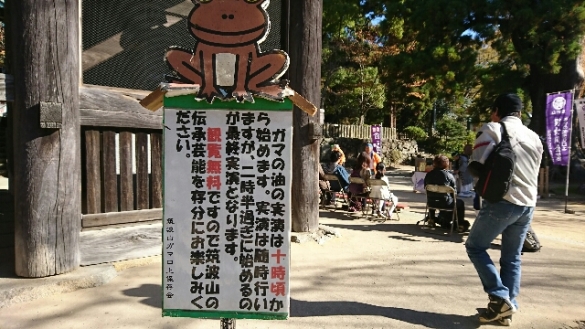 ガマの油の実演は十時頃か
ら始めます。実演は随時行い
ますが、二時半過ぎに始めるの
が最終実演となります。
観覧無料ですので筑波山の
伝承芸能を存分にお楽しみく
ださい。
筑波山ガマ口上保存会